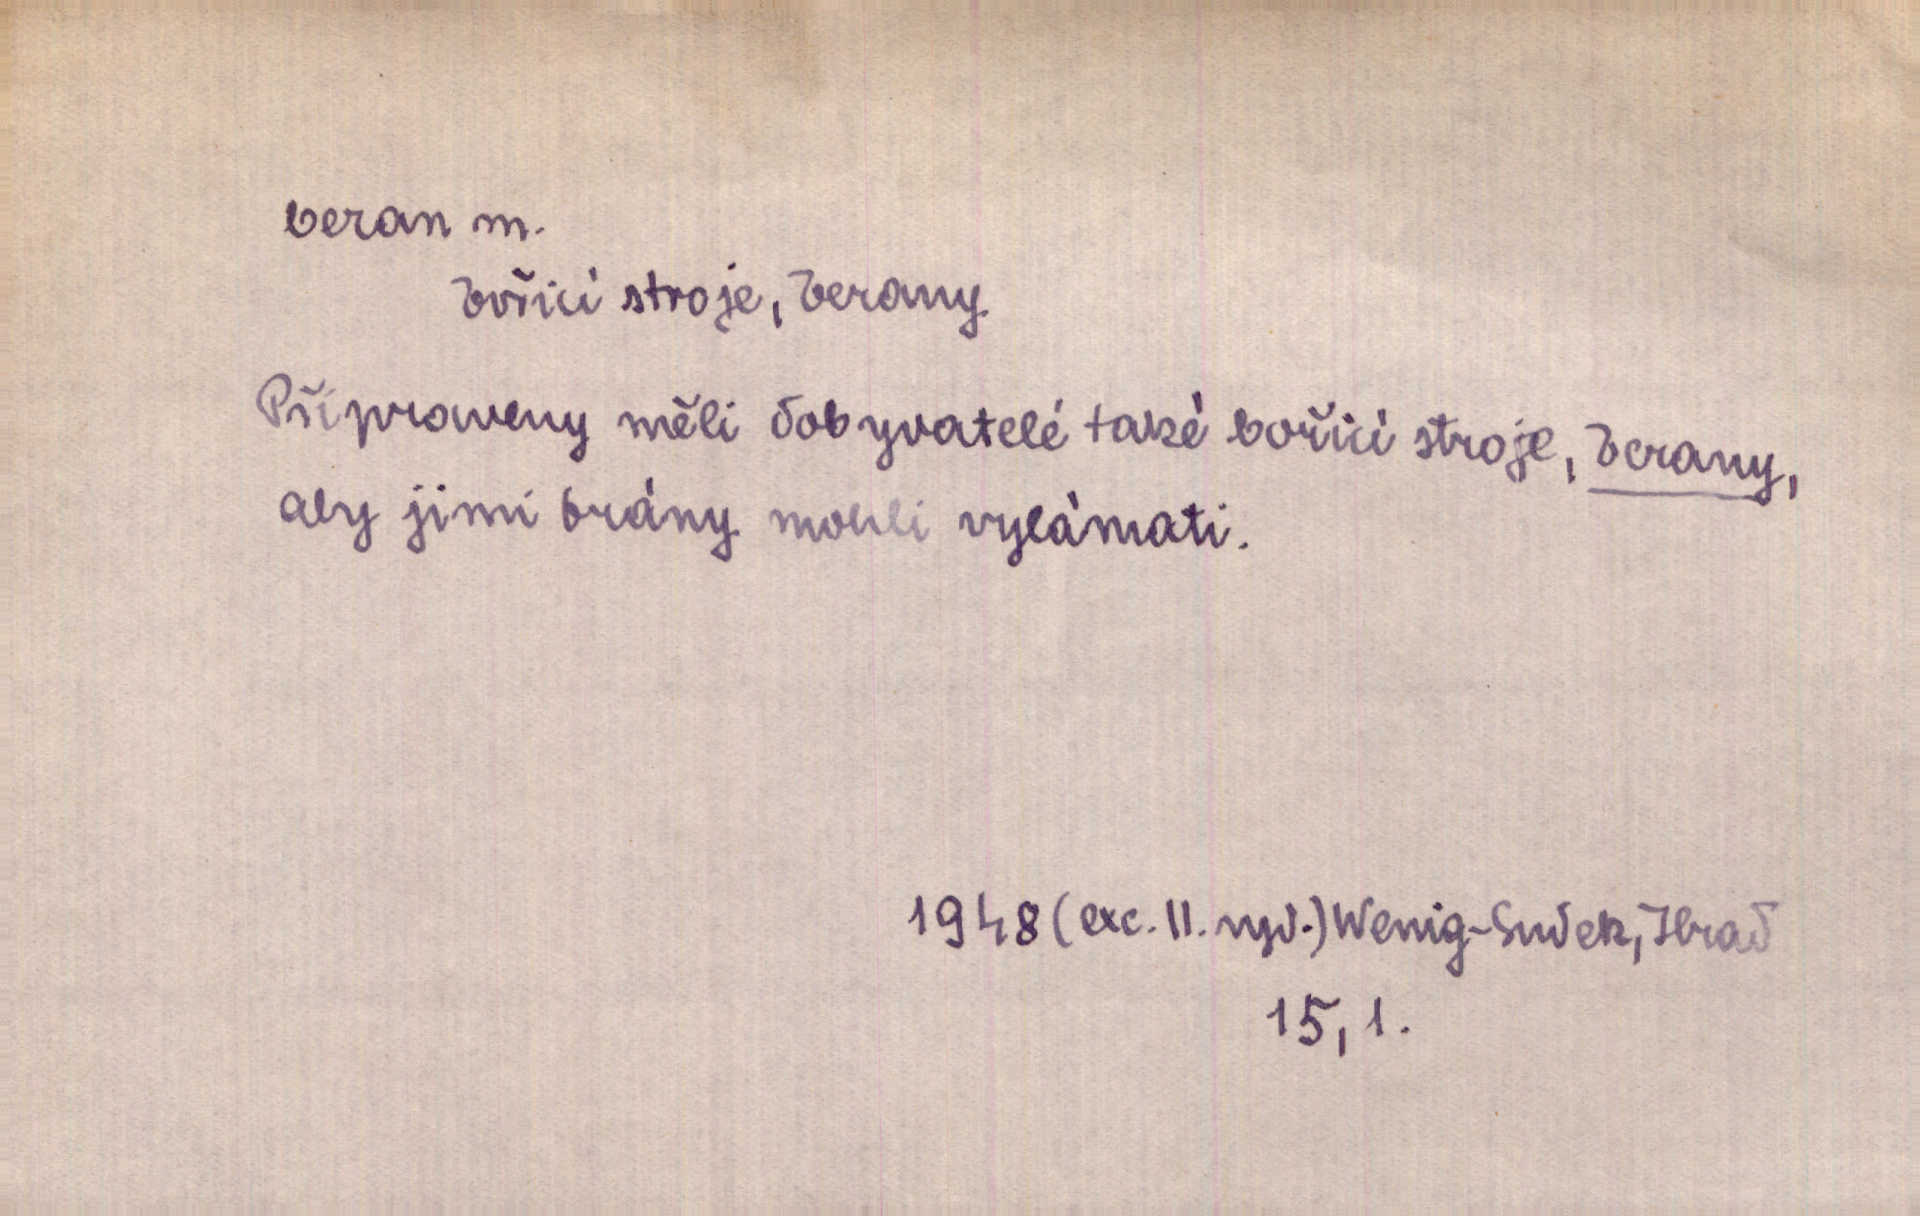 beran m.
bořicí stroje, berany
Připraveny měli dobyvatelé také bořicí stroje, berany,
aby jimi brány mohli vylámati.
1948 (exc. II. vyd.) Wenig-Sudek, Hrad
15, 1.